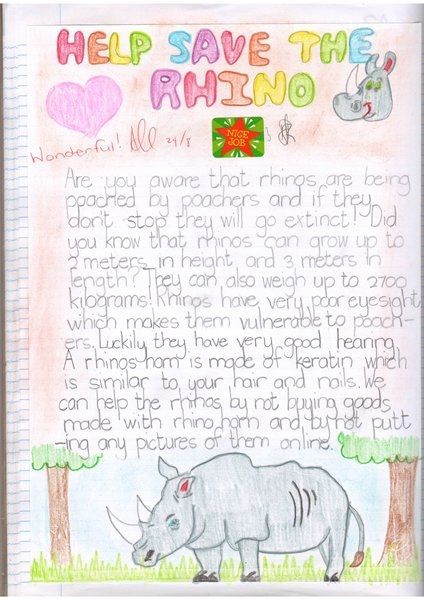 HELP SAVE THE
RHINO
Wonderful! 24/8
NICE
JOB
Are you aware that rhinos are being
poached by poachers and if they
don't stop they will go extinct! Did
you know that rhinos can grow up to
2 meters in height and 3 meters in
length? They can also weigh up to 2700
kilograms! Rhinos have very poor eyesight
which makes them vulnerable to poach-
ers. Luckily they have very good hearing.
A rhinos horn is made of keratin which
is similar to your hair and nails. We
can help the rhinos by not buying goods
made with rhino horn and by not putt
-ing any pictures of them online.